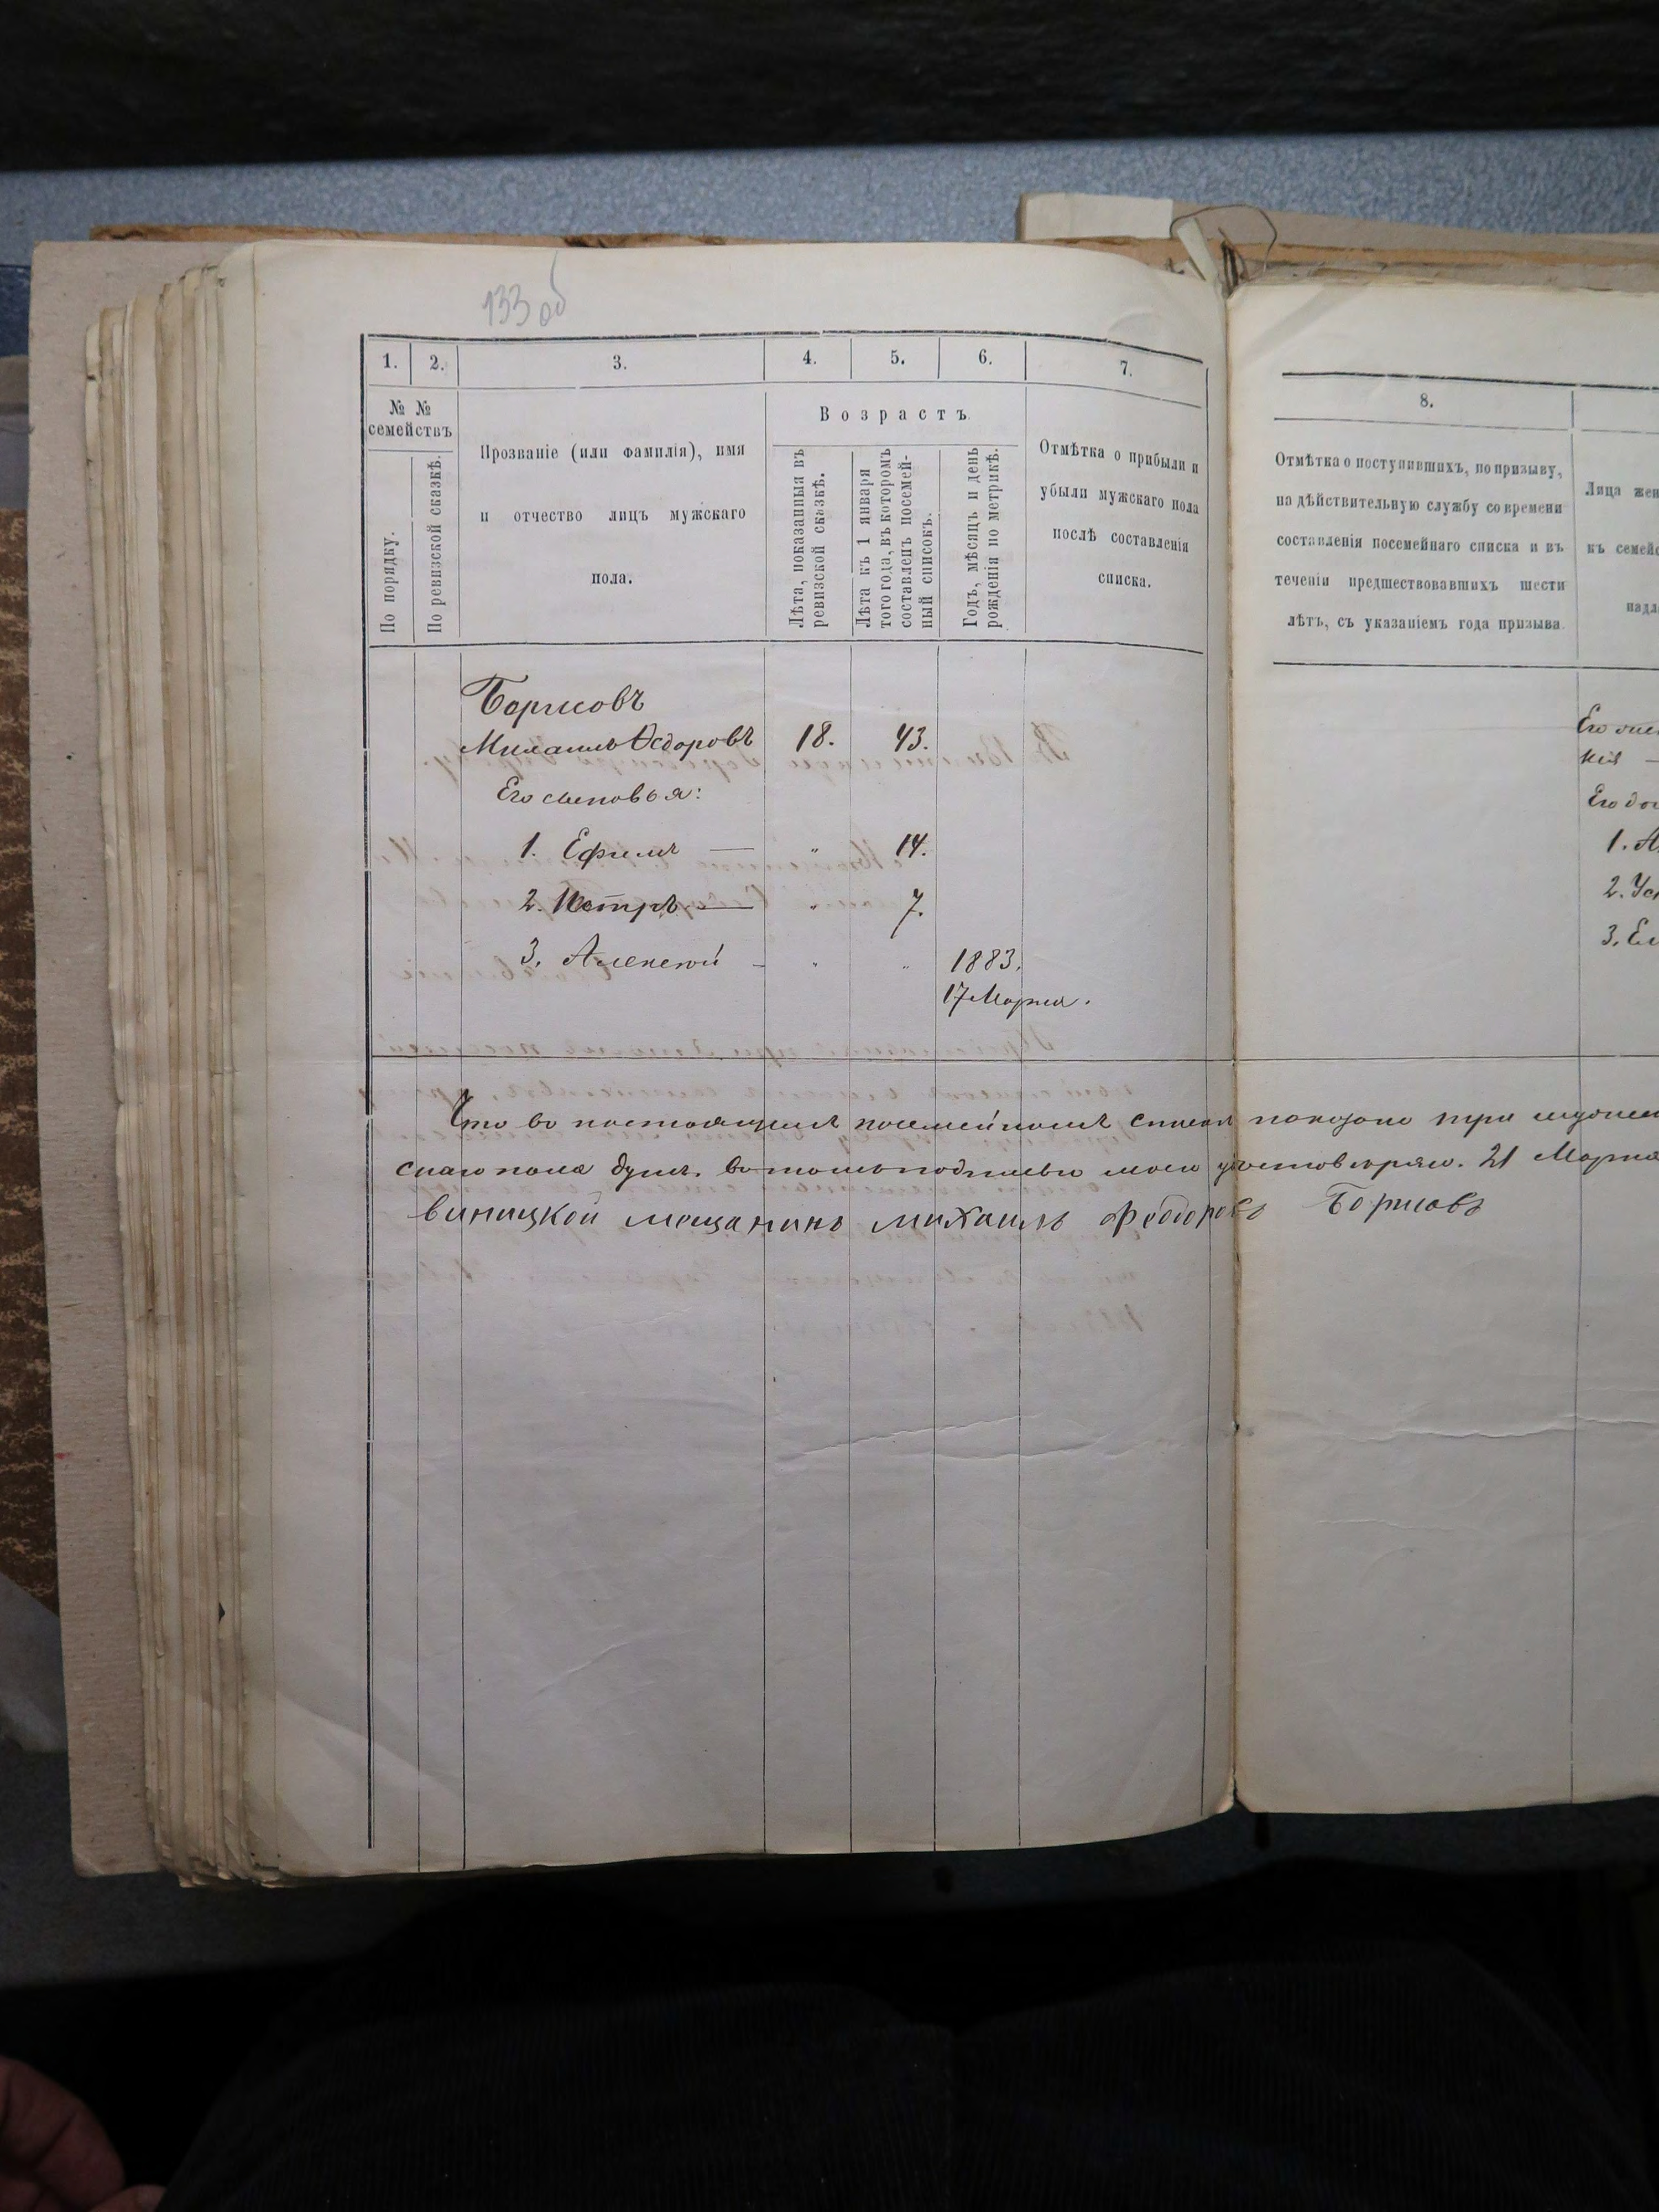 133 об
1. 2. 3. 4. 5. 6. 7.
№ № семействъ
По порядку.
По ревизской сказкѣ.
Прозваніе (или фамилія), имя
и отчество лицъ мужскаго
пола.
Возрастъ
Лѣта, показанныя въ
ревизской сказкѣ.
Лѣта къ 1 января
того года, въ которомъ
составленъ посемей-
ный списокъ.
Годъ, мѣсяцъ и день
рожденія по метрикѣ.
Отмѣтка о прибыли и
убыли мужскаго пола
послѣ составленія
списка.
8.
Отмѣтка о поступившихъ, по призыву,
на дѣйствительную службу со времени
составленія посемейнаго списка и въ
теченіи предшествовавшихъ шести
лѣтъ, съ указаніемъ года призыва.
Лица жен
къ семейс
надл
Борисовъ
Михаилъ Ѳедоровъ 18. 43.
Его сыновья:
1. Ефимъ — " 14.
2. Петръ — " 7.
3. Алексѣй - " " 1883.
17 Марта.
Его
кія —
Его до
1. А
2. Ус
3. Ел
Что въ настоящемъ посемейномъ списке показано три мужеск
скаго пола душъ. въ томъ подписью моею удостоверяю. 21 Марта
виницкой мещанинъ михаилъ Федоровъ Борисовъ